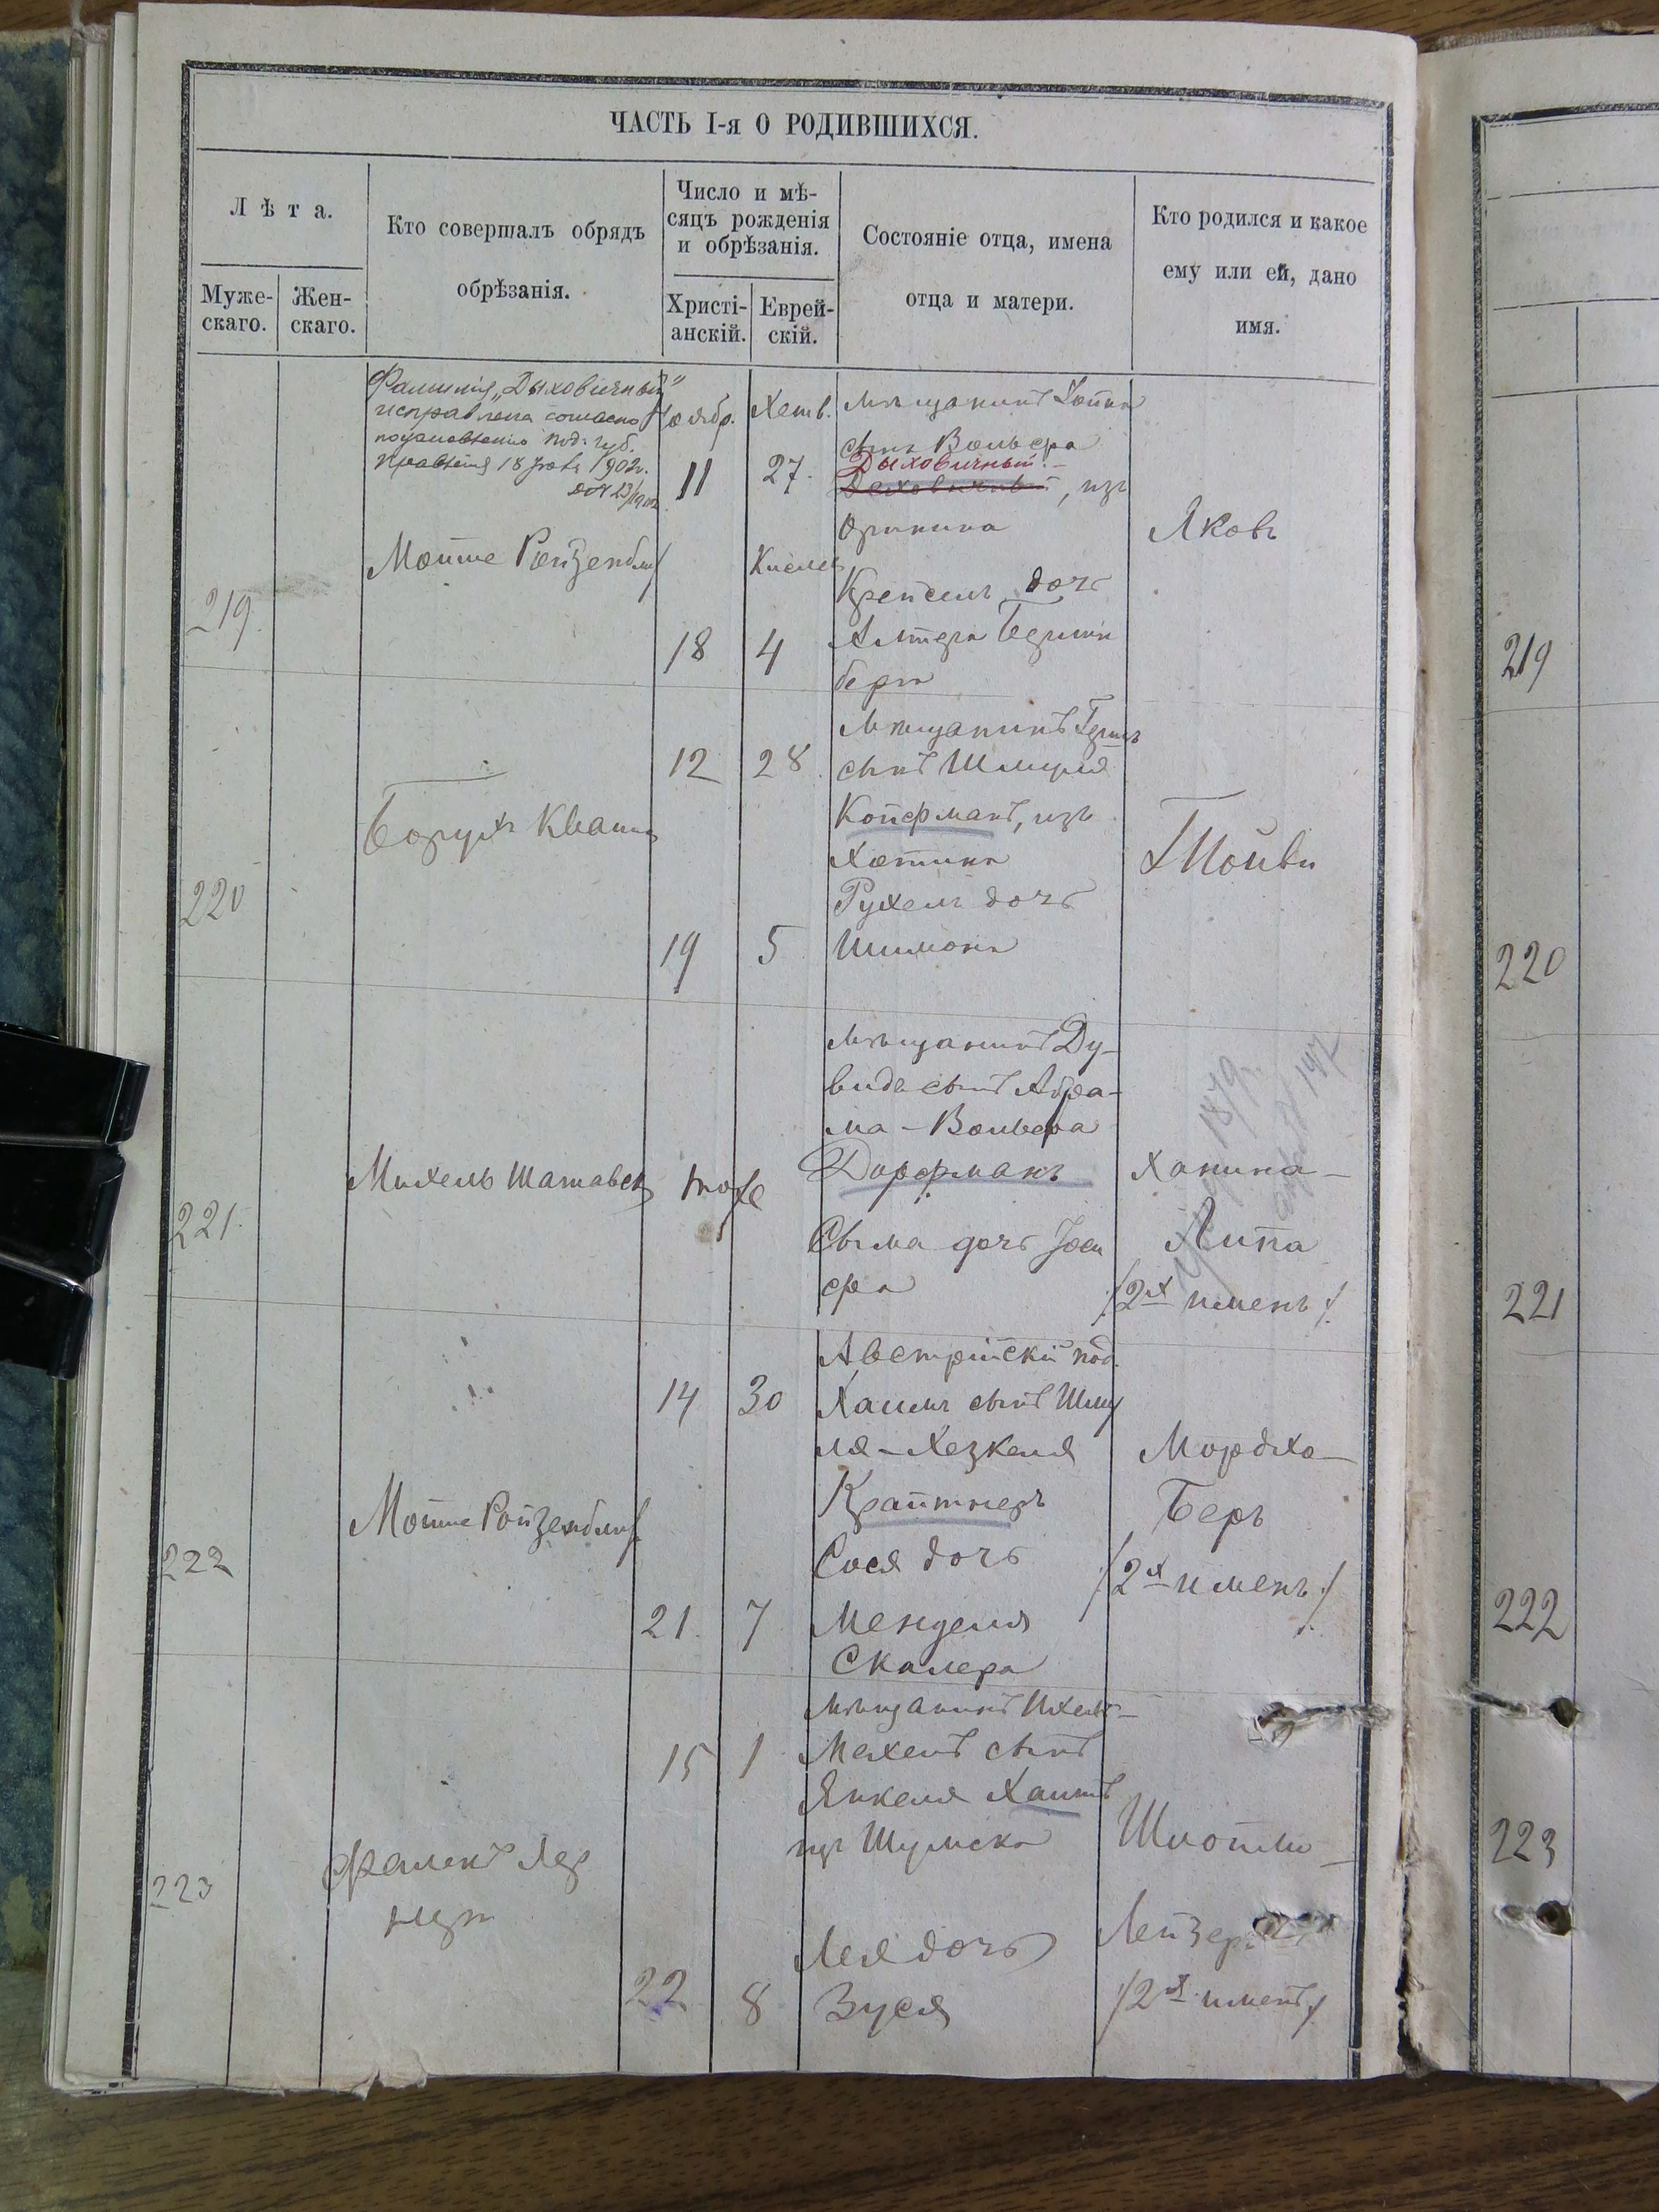 ЧАСТЬ I-я О РОДИВШИХСЯ.
Лѣта.
Муже-
скаго.
Жен-
скаго.
Кто совершалъ обрядъ
обрѣзанія.
Число и мѣ-
сяцъ рожденія
и обрѣзанія.
Христі-
анскій.
Еврей-
скій.
Состояніе отца, имена
отца и матери.
Кто родился и какое
ему или ей, дано
имя.
Фамилія „Дыховичный"
исправлена согласно
постановленію под. губ.
правленія 18 1902г.
219.
Мотте Ройзенблит
Ноябр.
11
18
Хешв.
27.
Кислев
4
Мѣщанинъ
сынъ Вольфа
Дыховичный
, изъ
Оринина
Крейселъ дочь
Алтера Берин
берга
Яковъ
220
Борухъ Кваша
12
19
28.
5
Мѣщанинъ Гершъ
сынъ Шмуля
Койфманъ, изъ
Хотина
Рухель дочь
Шимона
221.
Михель Шатавск
тоже
Мѣщанинъ Ду-
видъ сынъ Абра-
ма-Вольфа
Дорфманъ
Сыма дочь Іоси
фа
Ханина-
Липа
/2хъ именъ/.
1879
222
Мотте Ройзенблит
14
21.
30
7
Австрійскій под.
Хаимъ сынъ Шму
ля-Хезкеля
Крайтнеръ
Сося дочь
Менделя
Скалера
Мордхо-
Беръ
/2хъ именъ/
223
15
22
1
8
Мѣщанинъ Ихель-
Мехель сынъ
Янкеля Хаитъ
изъ Шумска
Лея дочь
Зуся
Шиомо-
Лейзеръ
/2хъ именъ/
219
220
221
222
223